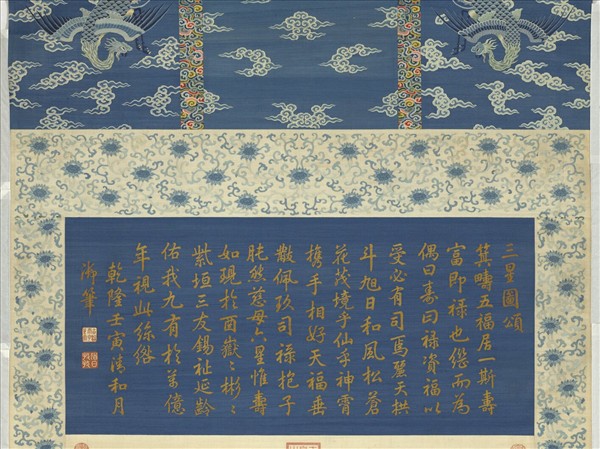 三星圖頌
箕疇五福居一斯壽
富即祿也儷而為
偶曰壽曰祿資福以
受必有司焉麗天拱
斗旭日和風松蒼
花茂境乎仙乎神霄
攜手相好天福垂
散佩玖司祿抱子
肫然慈母六星惟壽
如現於酉嶽〻彬〻
紫垣三友錫祉延齡
佑我九有於萬億
年視此絲綹
乾隆壬寅清和月
御筆